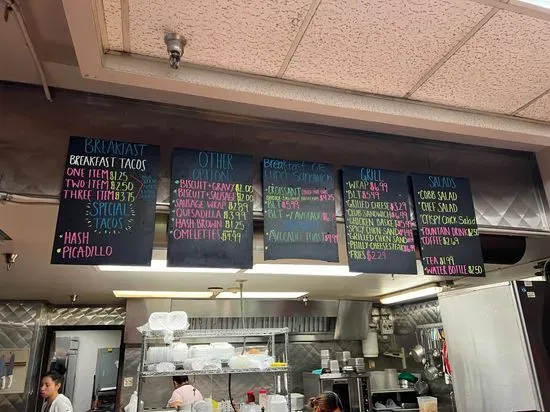 BREAKFAST
BREAKFAST TACOS
ONE ITEM $1.25
TWO ITEM $2.50
THREE ITEM $3.75
SPECIAL
TACOS
HASH
PICADILLO
OTHER
OPTIONS
BISCUIT + GRAVY $2.00
BISCUIT + SAUSAGE $2.00
SAUSAGE WRAP $2.89
QUESADILLA $3.99
HASH BROWN $1.25
OMELETTES $4.99
Breakfast OR
Lunch Sandwich
CROISSANT
BLT $5.99
BLT W/AVOCADO
AVOCADO TOAST
GRILL
WRAP $6.99
BLT $5.99
GRILLED CHEESE
CLUB SANDWICH
CHICKEN
SPICY CHKN SAND
GRILLED CHKN SAND
PHILLY CHEESESTEAK
FRIES $2.29
SALADS
COBB SALAD
CHEF SALAD
CRISPY CHICK Salad
FOUNTAIN DRINK
COFFEE $2.69
TEA $1.99
WATER BOTTLE $2.50